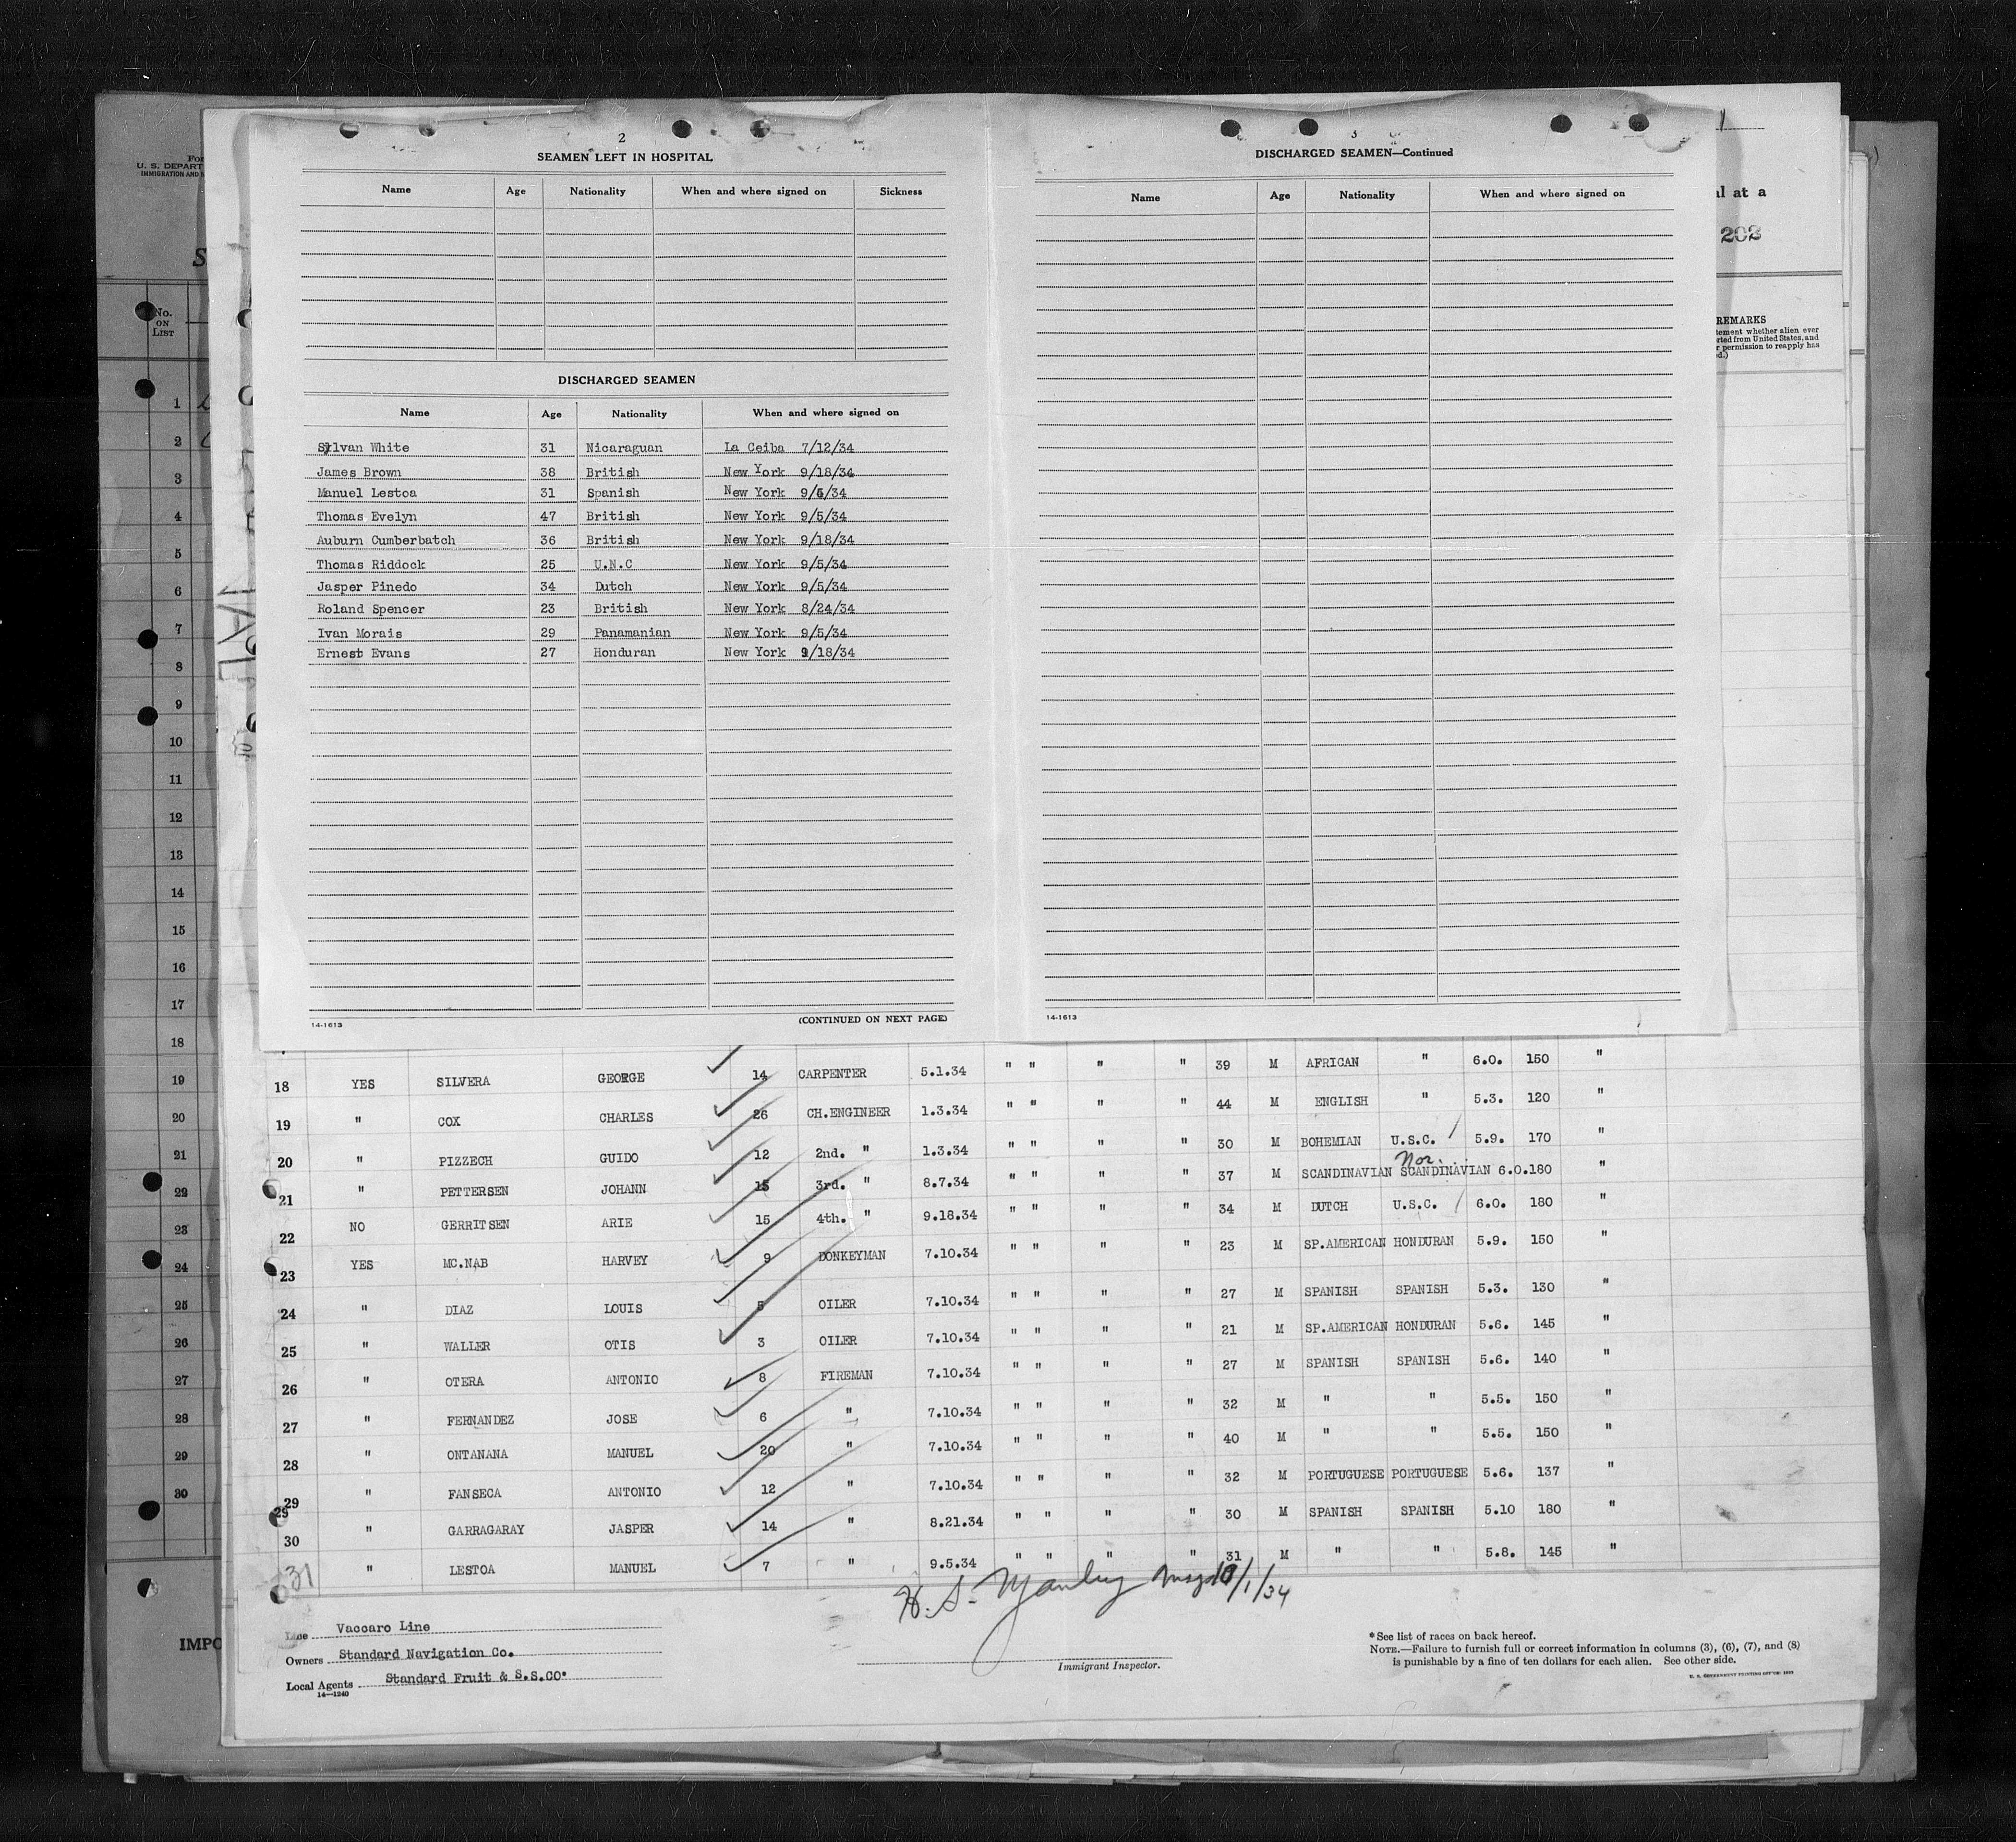 For
U. S. DEPART
IMMIGRATION AND
S
No.
ON
LIST
1
2
3
4
5
6
7
8
9
10
11
12
13
14
15
16
17
18
19
20
21
22
23
24
25
26
27
28
29
30
IMPO
2
SEAMEN LEFT IN HOSPITAL
Name Age Nationality When and where signed on Sickness
DISCHARGED SEAMEN
Name Age Nationality When and where signed on
Sylvan White 31 Nicaraguan La Ceiba 7/12/34
James Brown 38 British New York 9/18/34
Manuel Lestoa 31 Spanish New York 9/5/34
Thomas Evelyn 47 British New York 9/5/34
Auburn Cumberbatch 36 British New York 9/18/34
Thomas Riddock 25 U.N.C New York 9/5/34
Jasper Pinedo 34 Dutch New York 9/5/34
Roland Spencer 23 British New York 8/24/34
Ivan Morais 29 Panamanian New York 9/5/34
Ernest Evans 27 Honduran New York 9/18/34
14-1613 (CONTINUED ON NEXT PAGE)
3
DISCHARGED SEAMEN—Continued
Name Age Nationality When and where signed on
14-1613
al at a
202
REMARKS
tement whether alien ever
rted from United States, and
r permission to reapply has
ed.)
18 YES SILVERA GEORGE 14 CARPENTER 5.1.34 " " " " 39 M AFRICAN " 6.0. 150 "
19 " COX CHARLES 26 CH.ENGINEER 1.3.34 " " " " 44 M ENGLISH " 5.3. 120 "
20 " PIZZECH GUIDO 12 2nd. " 1.3.34 " " " " 30 M BOHEMIAN U.S.C. 5.9. 170 "
Nor.
21 " PETTERSEN JOHANN 15 3rd. " 8.7.34 " " " " 37 M SCANDINAVIAN SCANDINAVIAN 6.0. 180 "
22 NO GERRITSEN ARIE 15 4th. " 9.18.34 " " " " 34 M DUTCH U.S.C. 6.0. 180 "
23 YES MC.NAB HARVEY 9 DONKEYMAN 7.10.34 " " " " 23 M SP.AMERICAN HONDURAN 5.9. 150 "
24 " DIAZ LOUIS 5 OILER 7.10.34 " " " " 27 M SPANISH SPANISH 5.3. 130 "
25 " WALLER OTIS 3 OILER 7.10.34 " " " " 21 M SP.AMERICAN HONDURAN 5.6. 145 "
26 " OTERA ANTONIO 8 FIREMAN 7.10.34 " " " " 27 M SPANISH SPANISH 5.6. 140 "
27 " FERNANDEZ JOSE 6 " 7.10.34 " " " " 32 M " " 5.5. 150 "
28 " ONTANANA MANUEL 20 " 7.10.34 " " " " 40 M " " 5.5. 150 "
29 " FANSECA ANTONIO 12 " 7.10.34 " " " " 32 M PORTUGUESE PORTUGUESE 5.6. 137 "
30 " GARRAGARAY JASPER 14 " 8.21.34 " " " " 30 M SPANISH SPANISH 5.10 180 "
31 " LESTOA MANUEL 7 " 9.5.34 " " " " 31 M " " 5.8. 145 "
H. S. 10/1/34
Immigrant Inspector.
Line Vaccaro Line
Owners Standard Navigation Co.
Local Agents Standard Fruit & S.S.CO.
14—1240
*See list of races on back hereof.
NOTE.—Failure to furnish full or correct information in columns (3), (6), (7), and (8)
is punishable by a fine of ten dollars for each alien. See other side.
U. S. GOVERNMENT PRINTING OFFICE